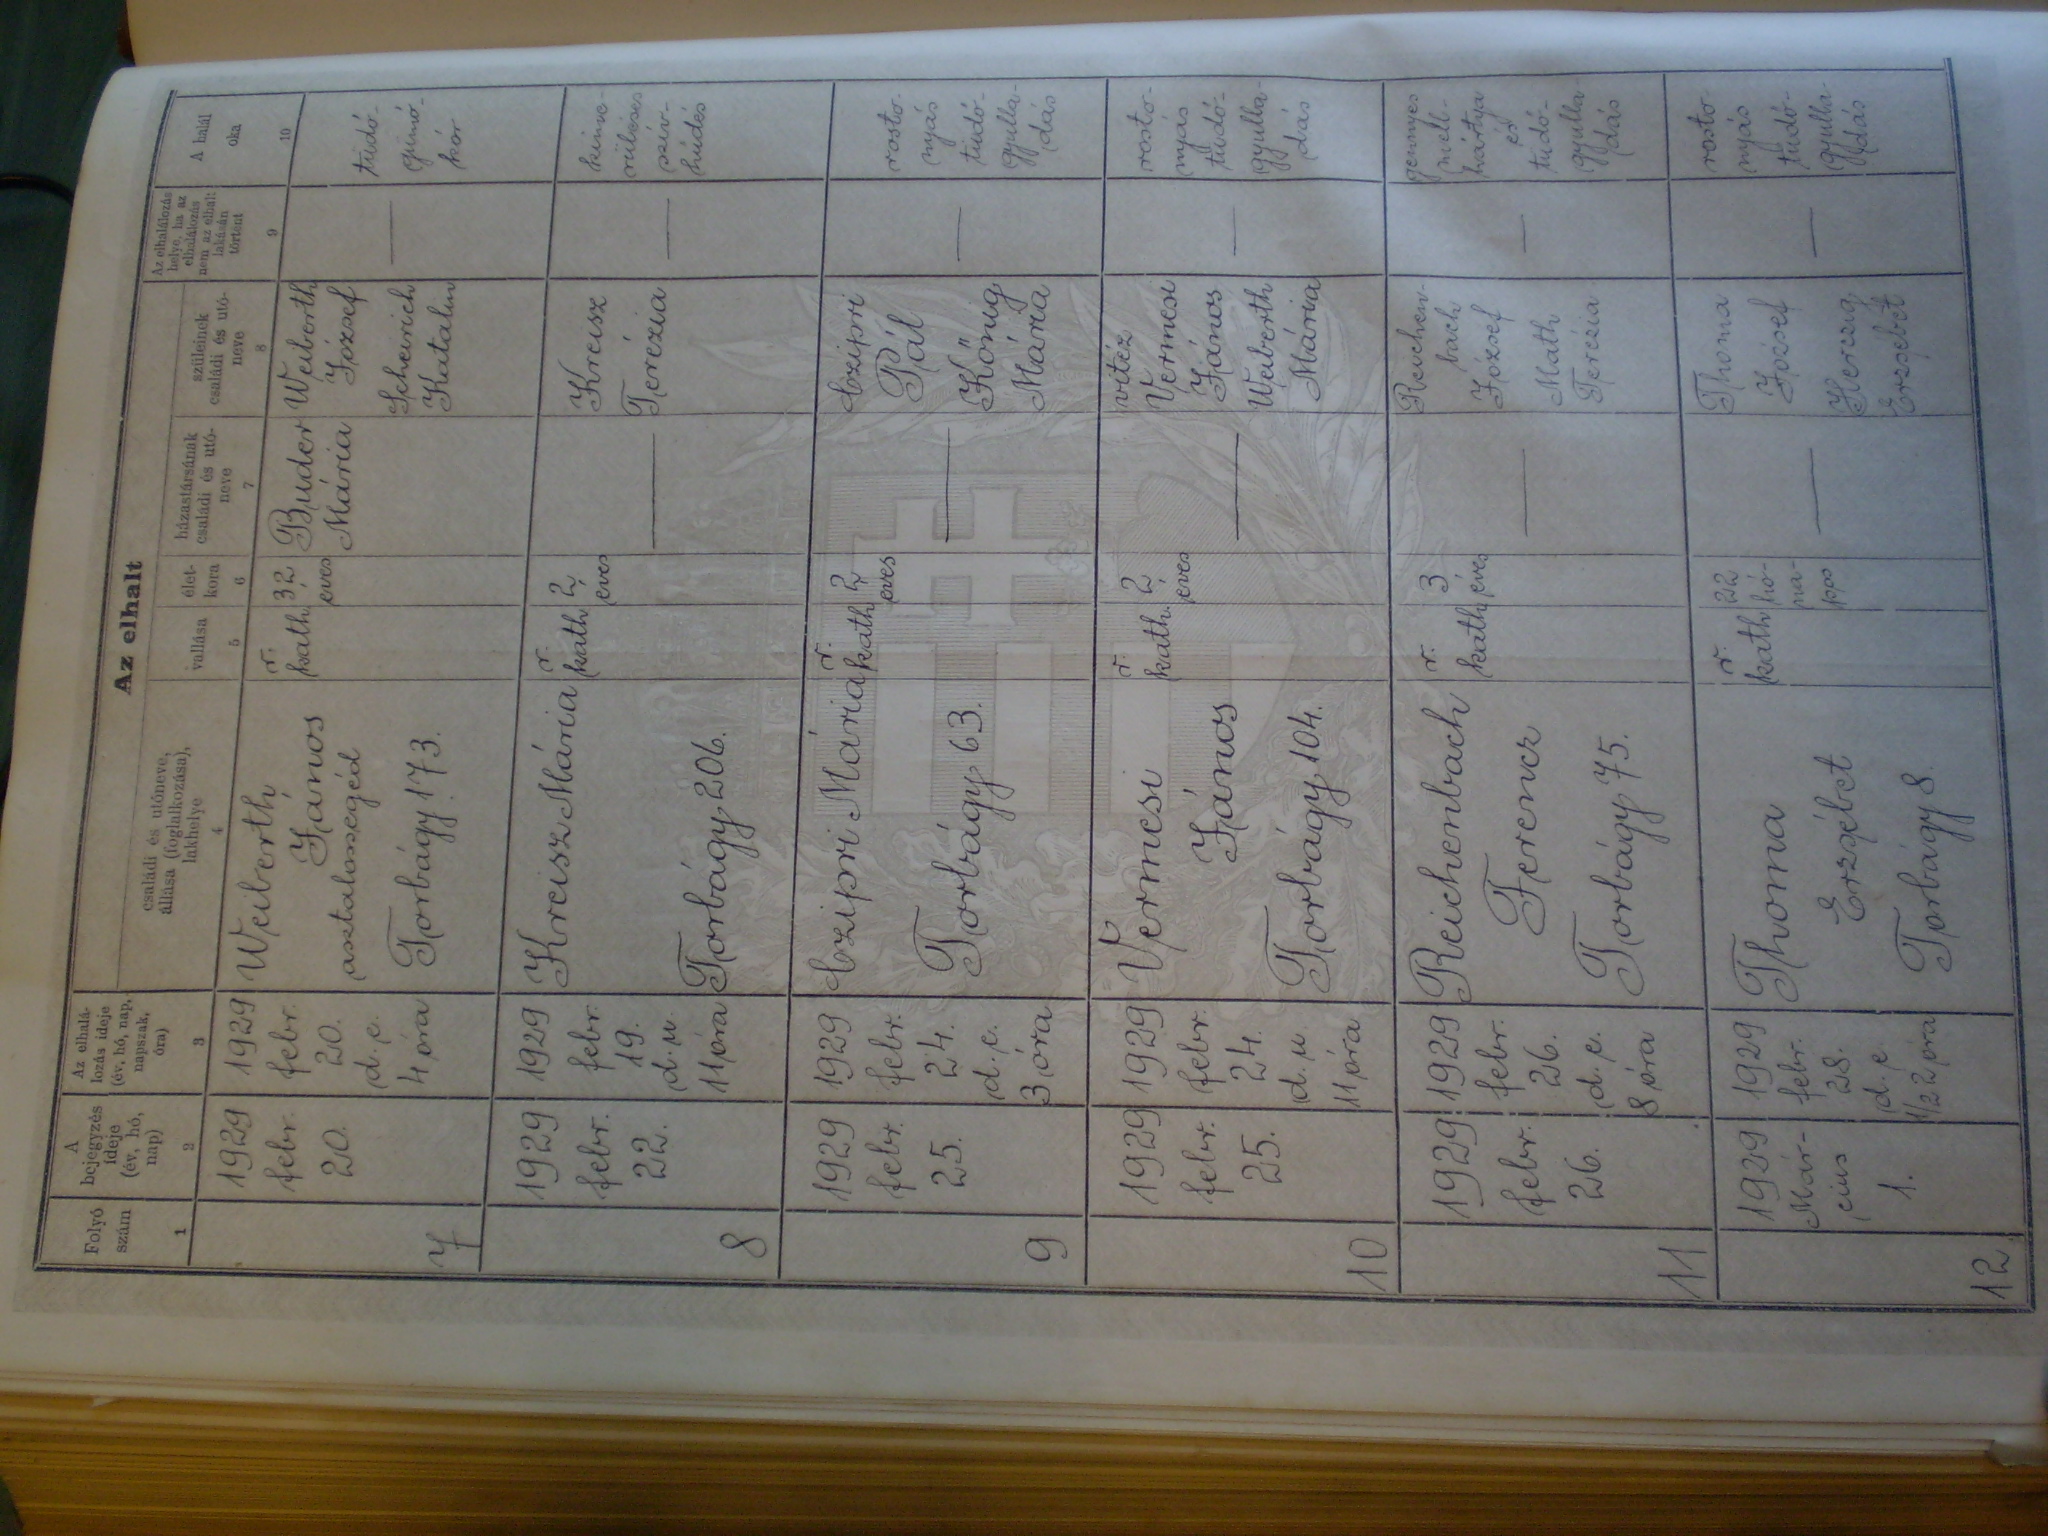 Az elhalt
Folyó
szám
A
bejegyzés
ideje
(év, hó,
nap)
Az elhalá-
lozás ideje
(év, hó, nap,
napszak,
óra)
családi és utóneve,
állása (foglalkozása),
lakhelye
vallása
élet-
kora
házastársának
családi és utó-
neve
szüleinek
családi és utó-
neve
Az elhalálozás
helye, ha az
elhalálozás
nem az elhalt
lakásán
történt
A halál
oka
1
2
3
4
5
6
7
8
9
10
7
1929
febr.
20.
1929
febr.
20.
d. e.
4 óra
Weiberth
János
asztalossegéd
Torbágy 173.
r.
kath.
32
éves
Buder
Mária
Weiberth
József
Scheirich
Katalin
—
tüdő-
gümő-
kór
8
1929
febr.
22.
1929
febr.
19.
d. u.
11 óra
Kreisz Mária
Torbágy 206.
r.
kath
2
éves
—
Kreisz
Terézia
—
szív-
hűdés
9
1929
febr.
25.
1929
febr.
24.
d. e.
3 óra
Czipri Mária
Torbágy 63.
r.
kath
2
éves
—
Czipri
Pál
König
Mária
—
rosto-
nyás
tüdő-
gyulla-
dás
10
1929
febr.
25.
1929
febr.
24.
d. u
11 óra
Vermesi
János
Torbágy 104.
r.
kath.
2
éves
—
vitéz
Vermesi
János
Weiberth
Mária
—
rosto-
nyás
tüdő-
gyulla-
dás
11
1929
febr.
26.
1929
febr.
26.
d. e.
8 óra
Reichenbach
Ferencz
Torbágy 75.
r.
kath
3
éves
—
Reichen-
bach
József
Math
Terézia
—
gennyes
mell-
hártya
és
tüdő-
gyulla
dás
12
1929
Már-
cius
1.
1929
febr.
28.
d. e.
1/2 2 óra
Thoma
Erzsébet
Torbágy 8.
r.
kath
22
hó-
na-
pos
—
Thoma
József
Herczig
Erzsébet
—
rosto-
nyás
tüdő-
gyulla-
dás